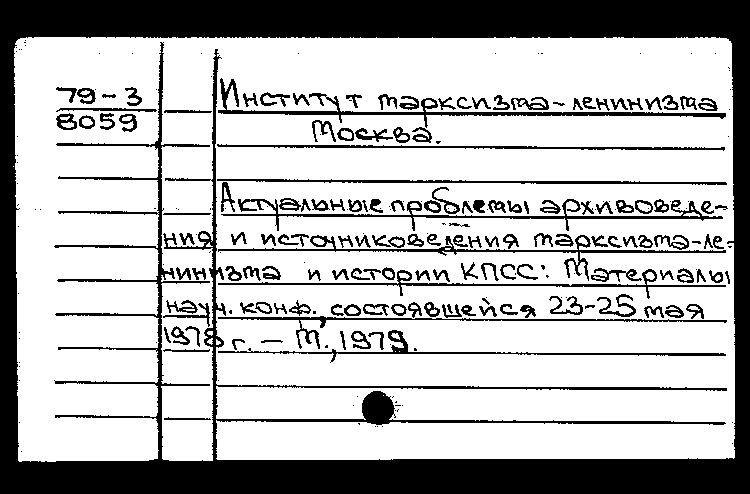 79-3
8059
Институт марксизма-ленинизма
Москва.
Актуальные проблемы архивоведе-
ния и источниковедения марксизма-ле-
нинизма и истории КПСС: Материалы
науч. конф., состоявшейся 23-25 мая
1978 г. - М., 1979.